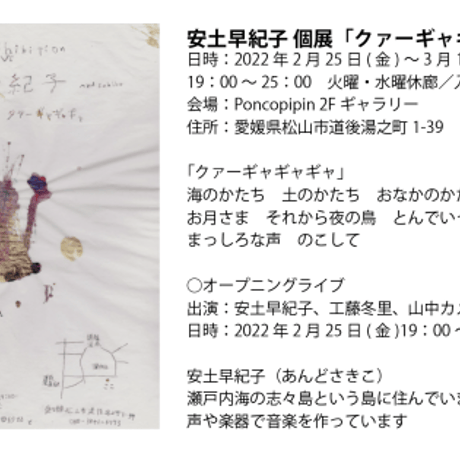 hibition
紀子
安土早紀子 個展「クァーギャギ
日時：2022 年 2 月 25 日 ( 金 ) 〜 3 月 1
19：00 〜 25：00　火曜・水曜休廊／
会場：Poncopipin 2F ギャラリー
住所：愛媛県松山市道後湯之町 1-39
「クァーギャギャギャ」
海のかたち　土のかたち　おなかのか
お月さま　それから夜の鳥　とんでい
まっしろな声　のこして
○オープニングライブ
出演：安土早紀子、工藤冬里、山中カ
日時：2022 年 2 月 25 日 ( 金 )19：00 〜
安土早紀子（あんどさきこ）
瀬戸内海の志々島という島に住んでい
声や楽器で音楽を作っています